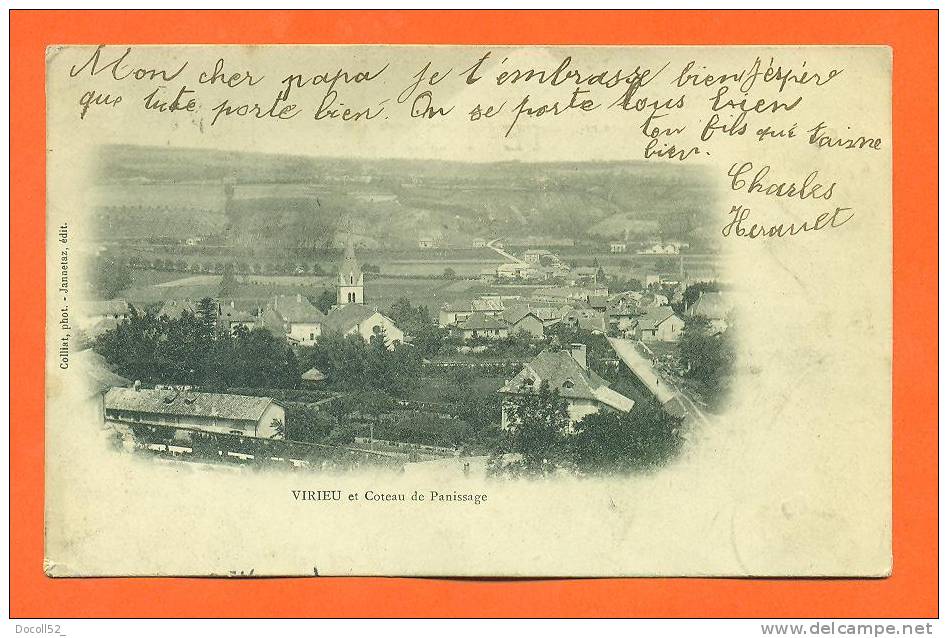 Mon cher papa je t'embrasse bien J'éspére
que tu te porte bien. On se porte tous bien
ton fils qué taisne
bien.
Charles
Herault
Colliat, phot. - Jannetaz, édit.
VIRIEU et Coteau de Panissage
Docoll52_
http://www.delcampe.net